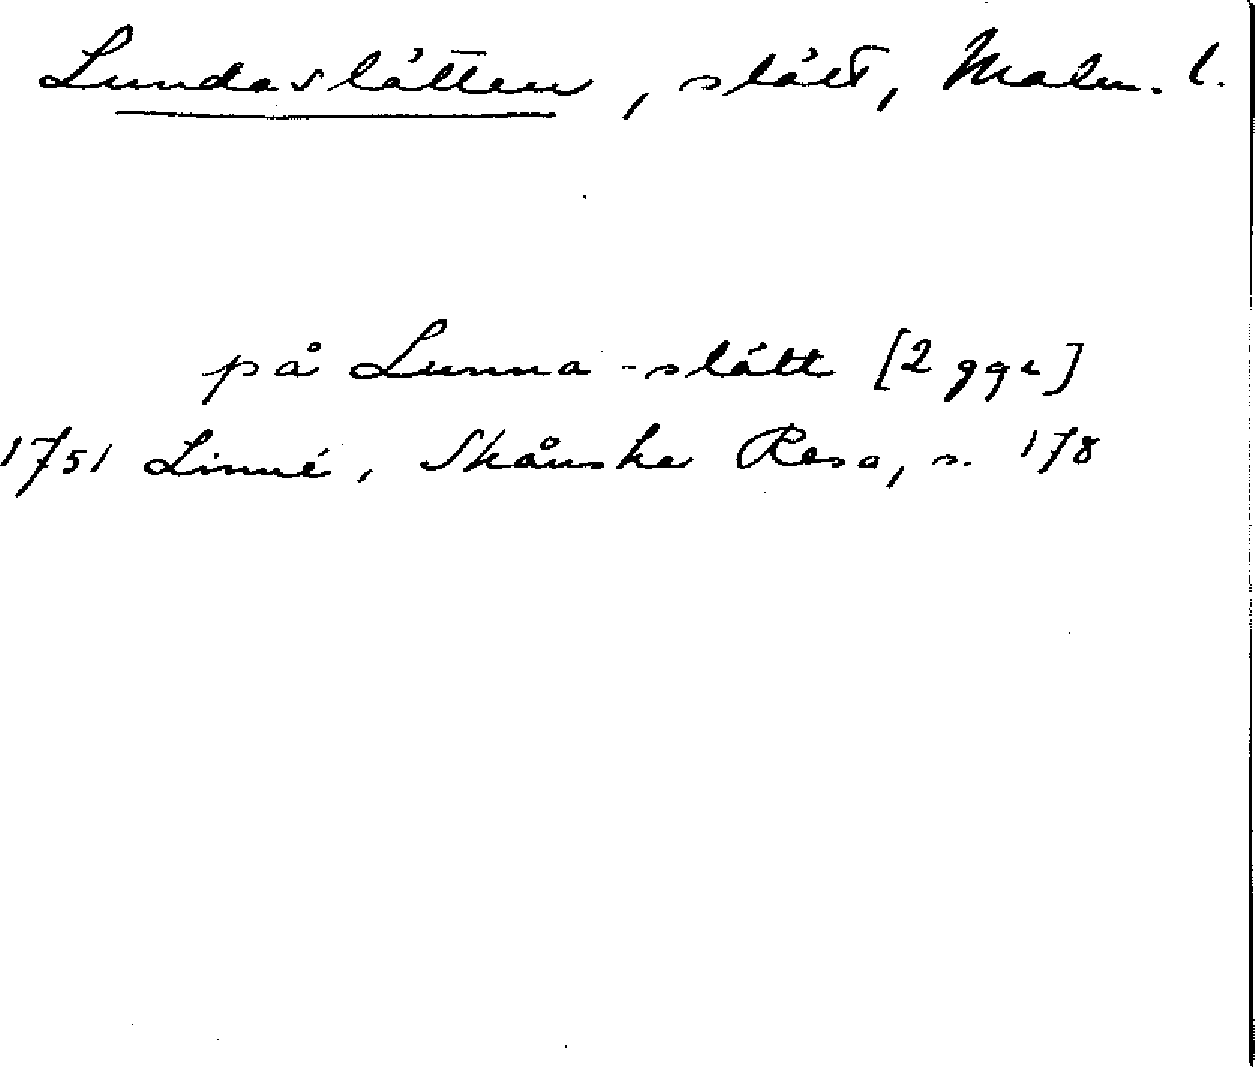 Lundaslätten, slätt, Malm. l.
på Lunna-slätt [2 ggr]
1751 Linné, Skånska Resa, s. 178